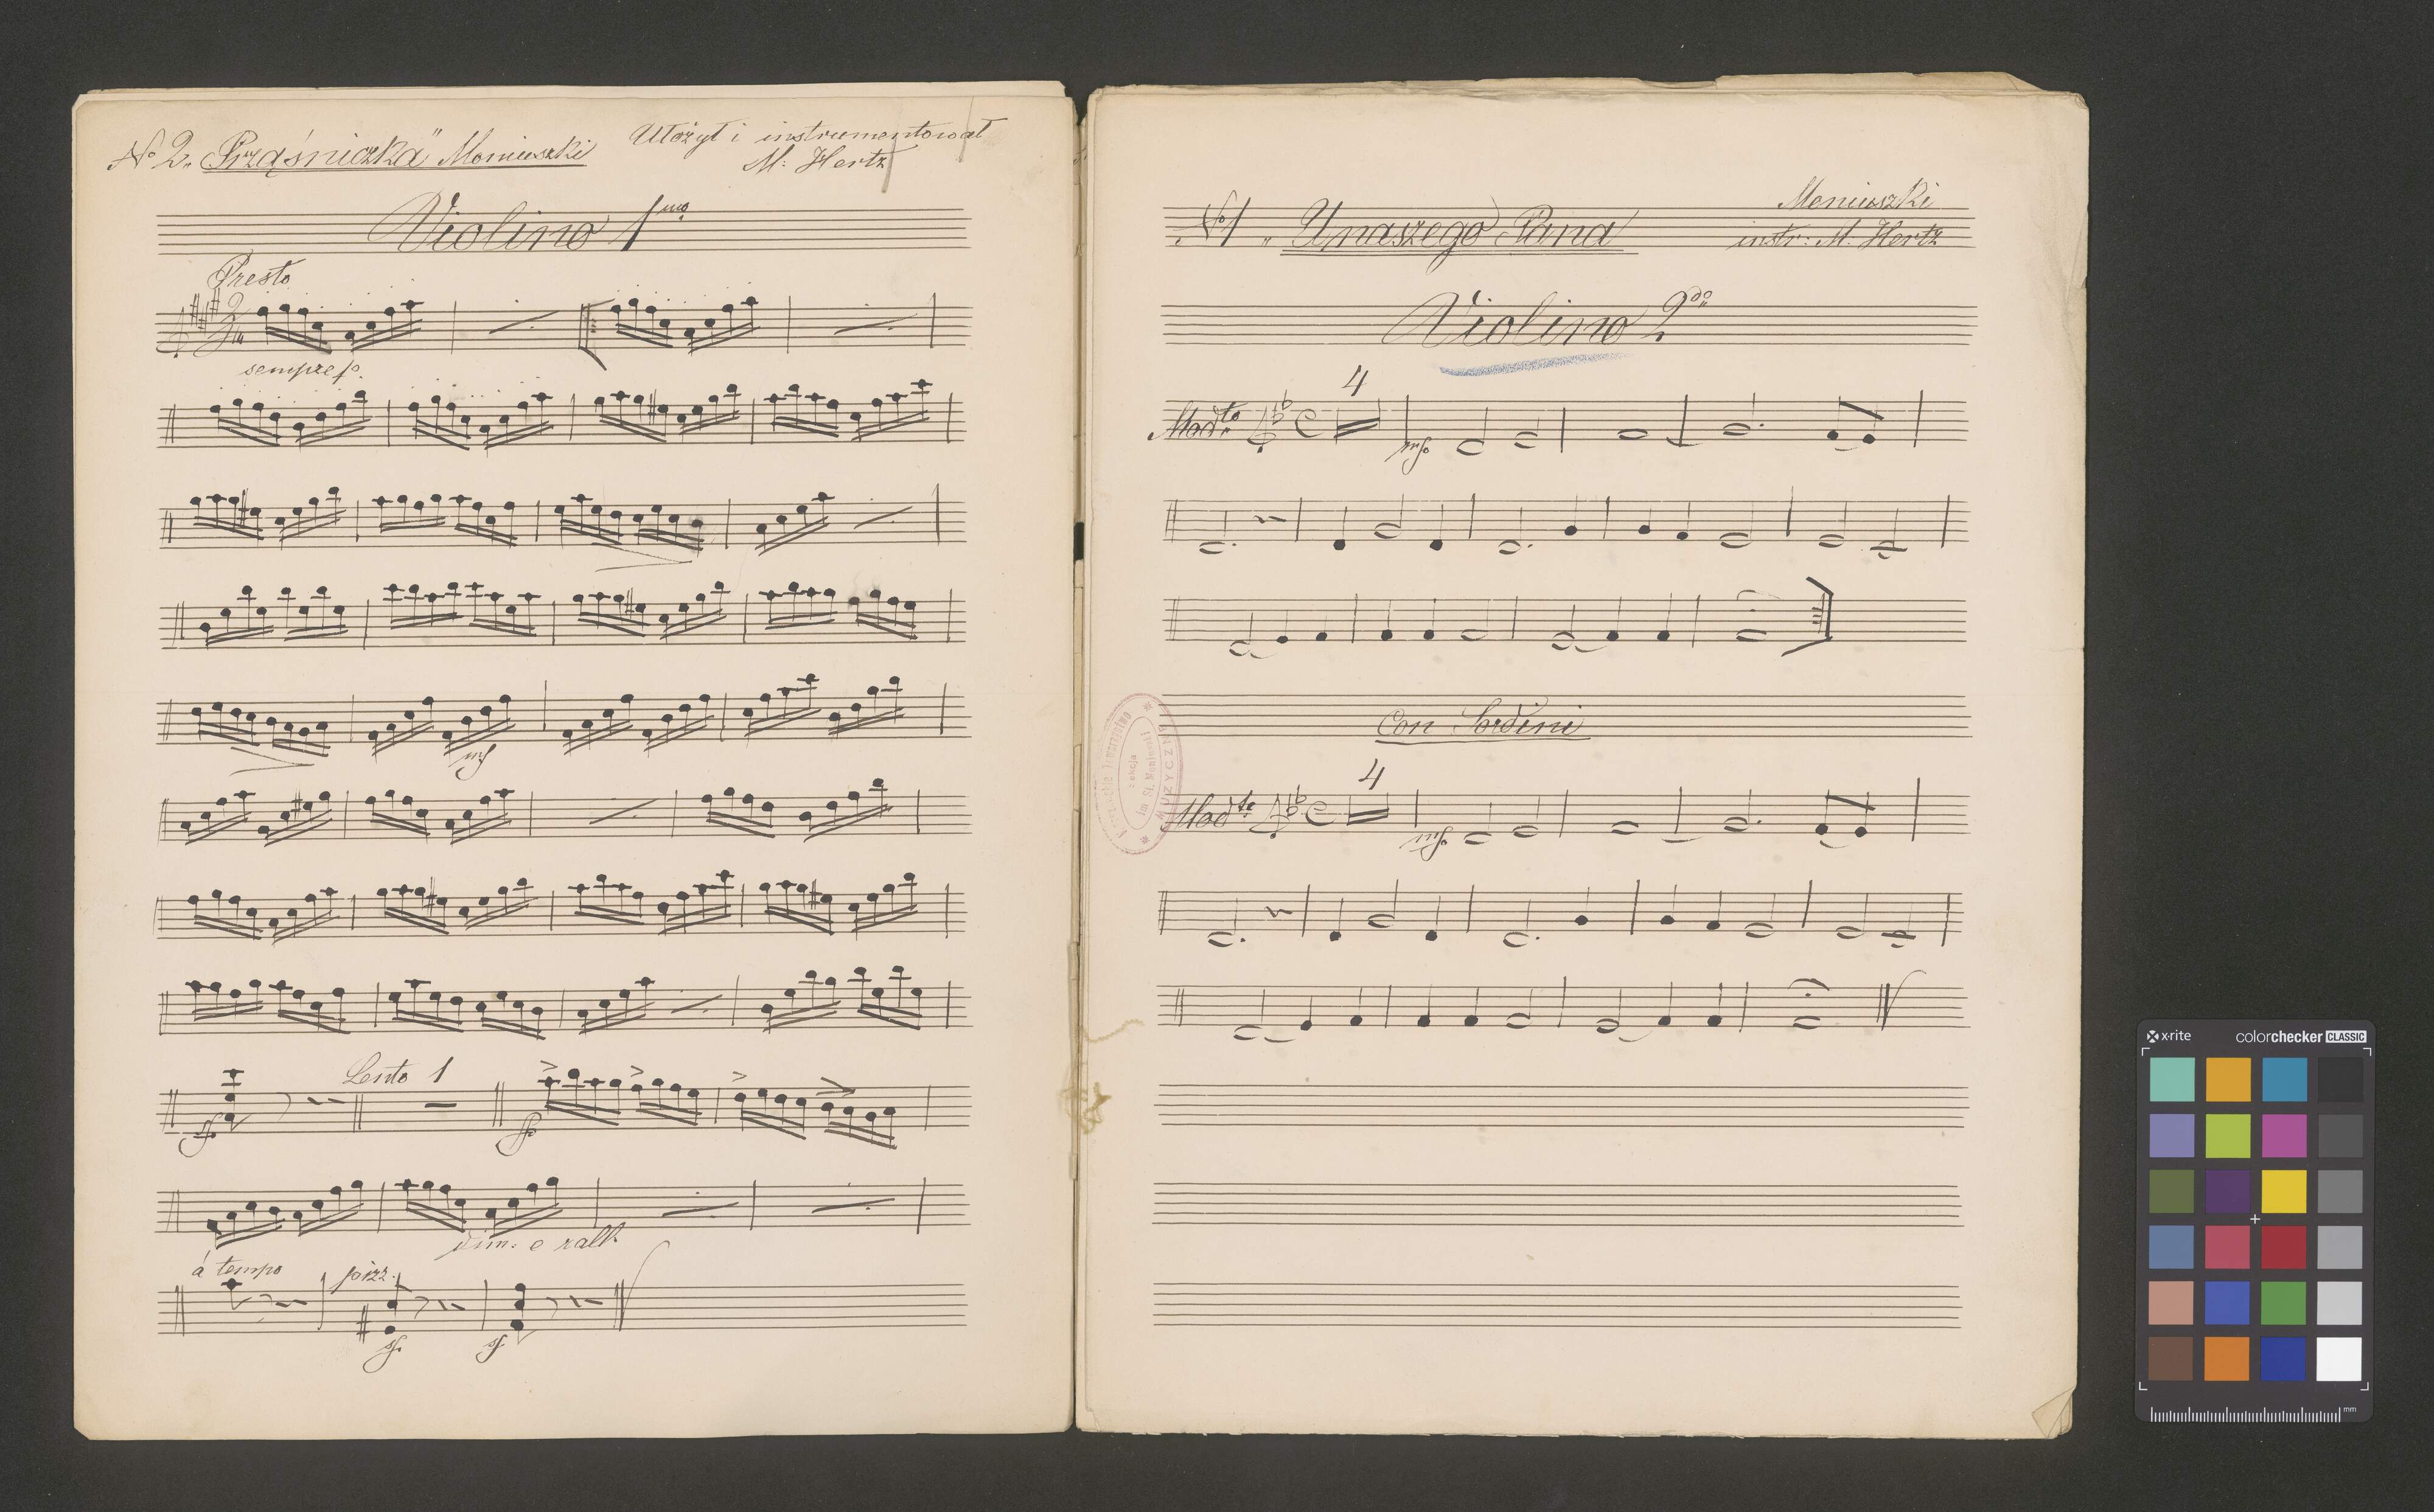 No 2. „Prząśniczka" Moniuszki
Ułożył i instrumentował
M: Hertz
Violino 1mo
Presto
2
4
sempre p.
mf
Lento 1
ff
ff
dim: e rall
á tempo
pizz.
sf
sf
No 1 „Unaszego Pana
Moniuszki
instr: M. Hertz
Violino 2do
4
Modto
mf
Con Sordini
4
Modto
mf
im. St. Moniuszki
MUZYCZNE
x-rite
colorchecker CLASSIC
mm